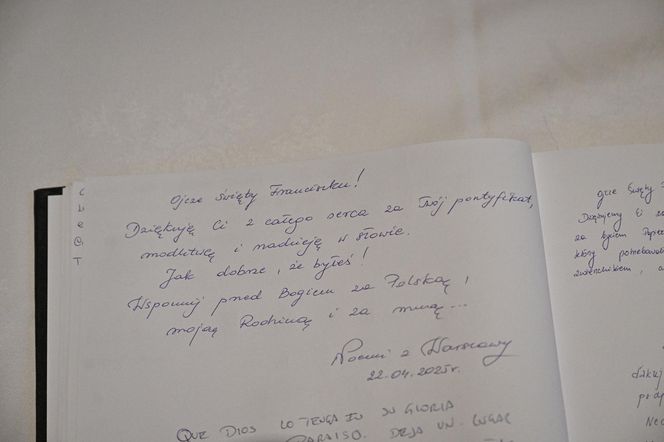 Ojcze Święty Franciszku!
Dziękuję Ci z całego serca za Twój pontyfikat,
modlitwę i nadzieję w słowie.
Jak dobrze, że byłeś!
Wspomnij przed Bogiem za Polską,
moją Rodziną i za mną...
Noemi z Warszawy
22.04.2025r.
QUE DIOS LO TENGA EN SU GLORIA
PARAISO. DEJA UN LUGAR
Dziękujemy Ci
za bycie
który